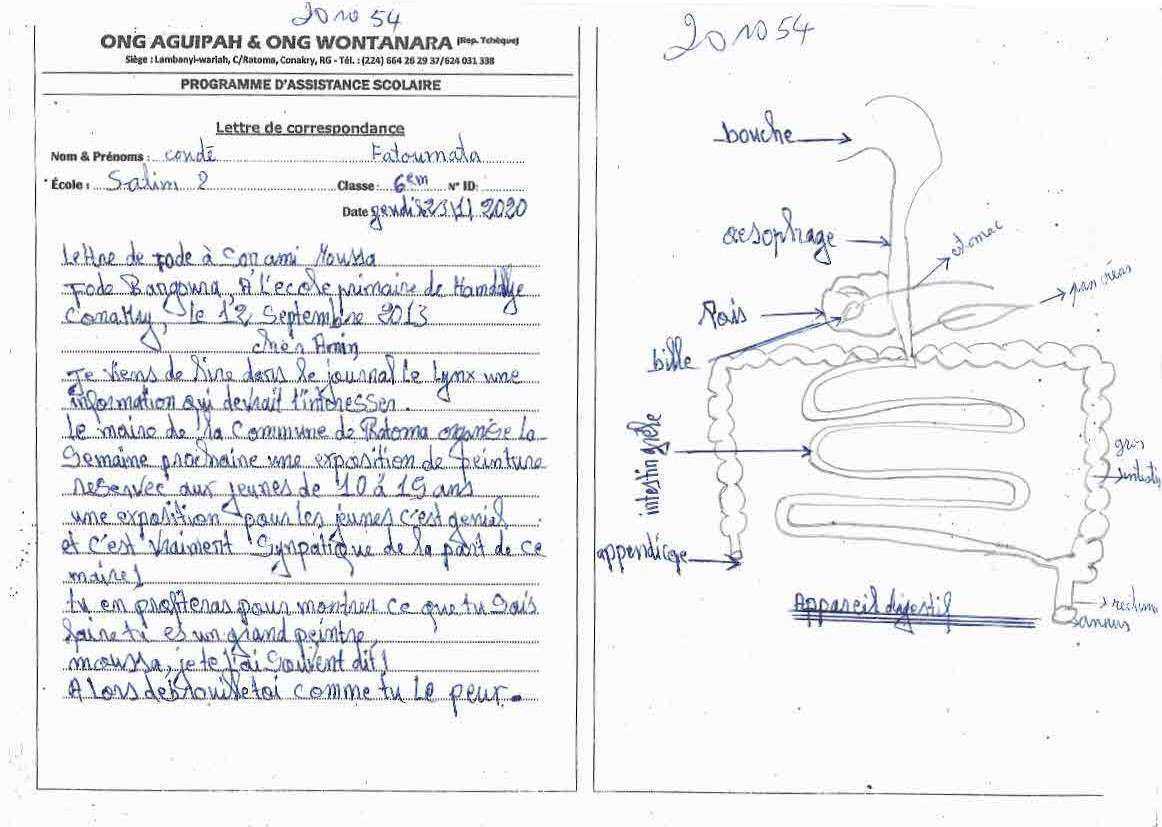 201054
ONG AGUIPAH & ONG WONTANARA (Rep. Tchèque)
Siège : Lambanyi-wariah, C/Ratoma, Conakry, RG - Tél. : (224) 664 26 29 37/624 031 338
PROGRAMME D'ASSISTANCE SCOLAIRE
Lettre de correspondance
Nom & Prénoms : condé Fatoumata
École : Salim 2 Classe : 6em N° ID:
Date 2020
Lettre de Fode à Son ami Moussa
Fode Bangoura, A l'école primaire de Hamdallye
Conakry, le 12 Septembre 2013
cher Amin
Je viens de lire dans le journal le lynx une
information qui devrait t'interesser.
le maire de la Commune de Ratoma organise la
Semaine prochaine une exposition de peinture
reservée aux jeunes de 10 à 15 ans
une exposition pour les jeunes c'est genial
et c'est vraiment Synpatique de la part de ce
maire!
tu en profiteras pour montrer ce que tu Sais
faire tu es un grand peintre,
moussa, je te l'ai Souvent dit!
Alors debrouille toi comme tu le peux.
201054
bouche
œsophage
estomac
pancréas
fois
bille
intestin grele
gros
intestin
appendicge
Appareil digestif
rectum
annus